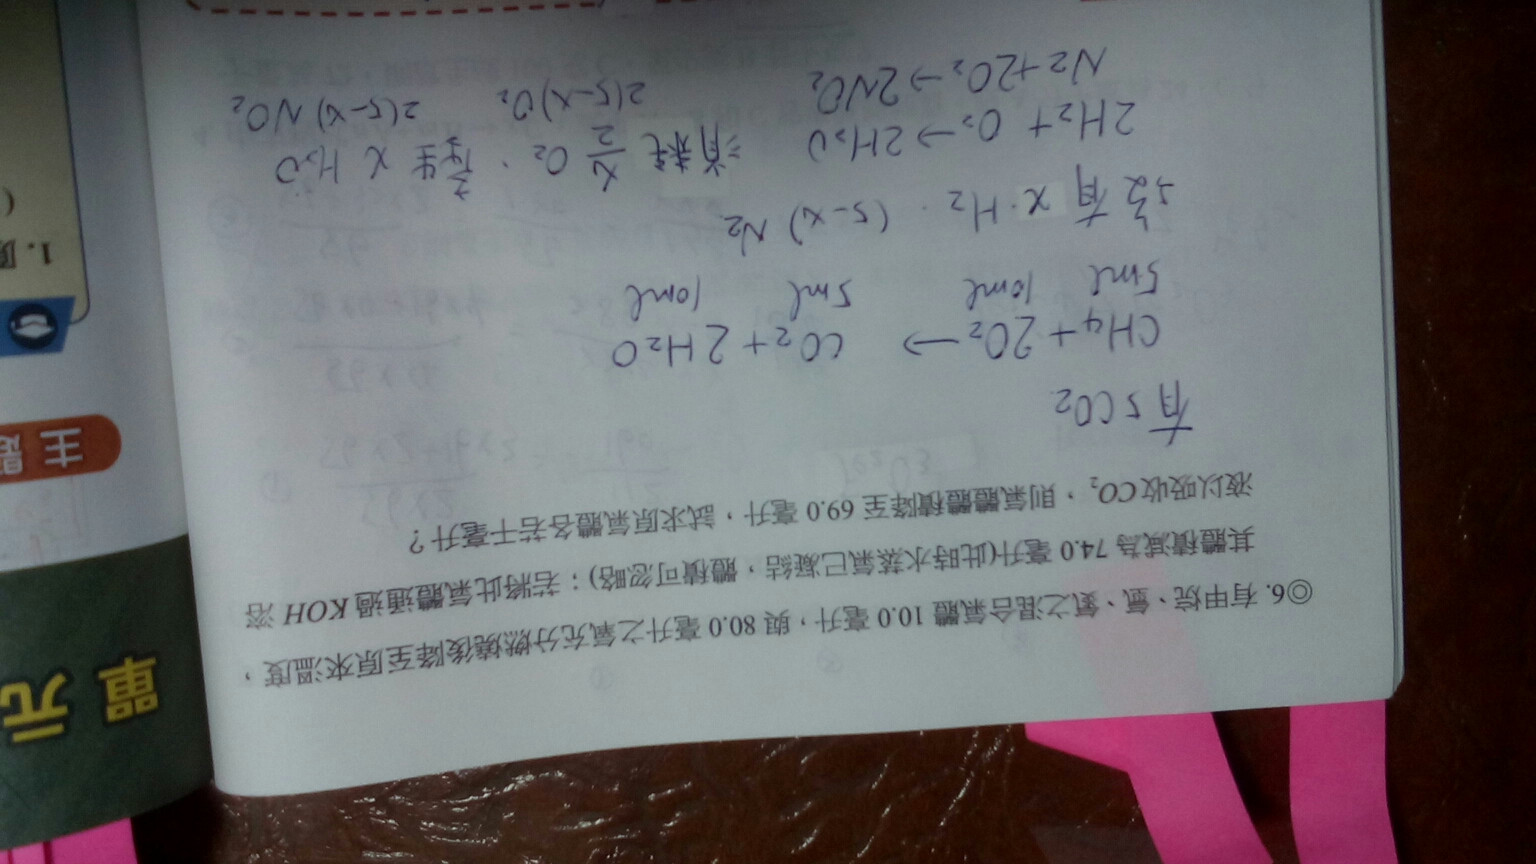 單元
主題
1.
◎6. 有甲烷、氫、氮之混合氣體 10.0 毫升,與 80.0 毫升之氧充分燃燒後降至原來溫度,
其體積減為 74.0 毫升(此時水蒸氣已凝結,體積可忽略);若將此氣體通過 KOH 溶
液以吸收CO₂,則氣體體積降至 69.0 毫升,試求原氣體各若干毫升?
有5CO₂
CH₄ + 2O₂ → CO₂ + 2H₂O
5ml 10ml 5ml 10ml
設有 x H₂ . (5-x) N₂
2H₂ + O₂ → 2H₂O 消耗 x/2 O₂ . 產生 x H₂O
N₂ + 2O₂ → 2NO₂ 2(5-x)O₂ 2(5-x) NO₂